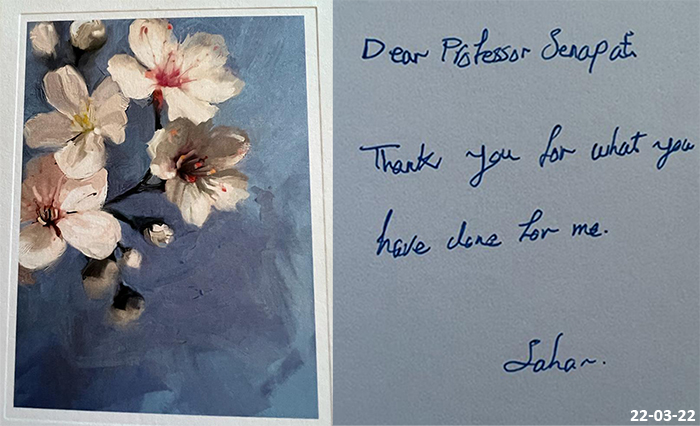 Dear Professor Senapati
Thank you for what you
have done for me.
Sahar.
22-03-22